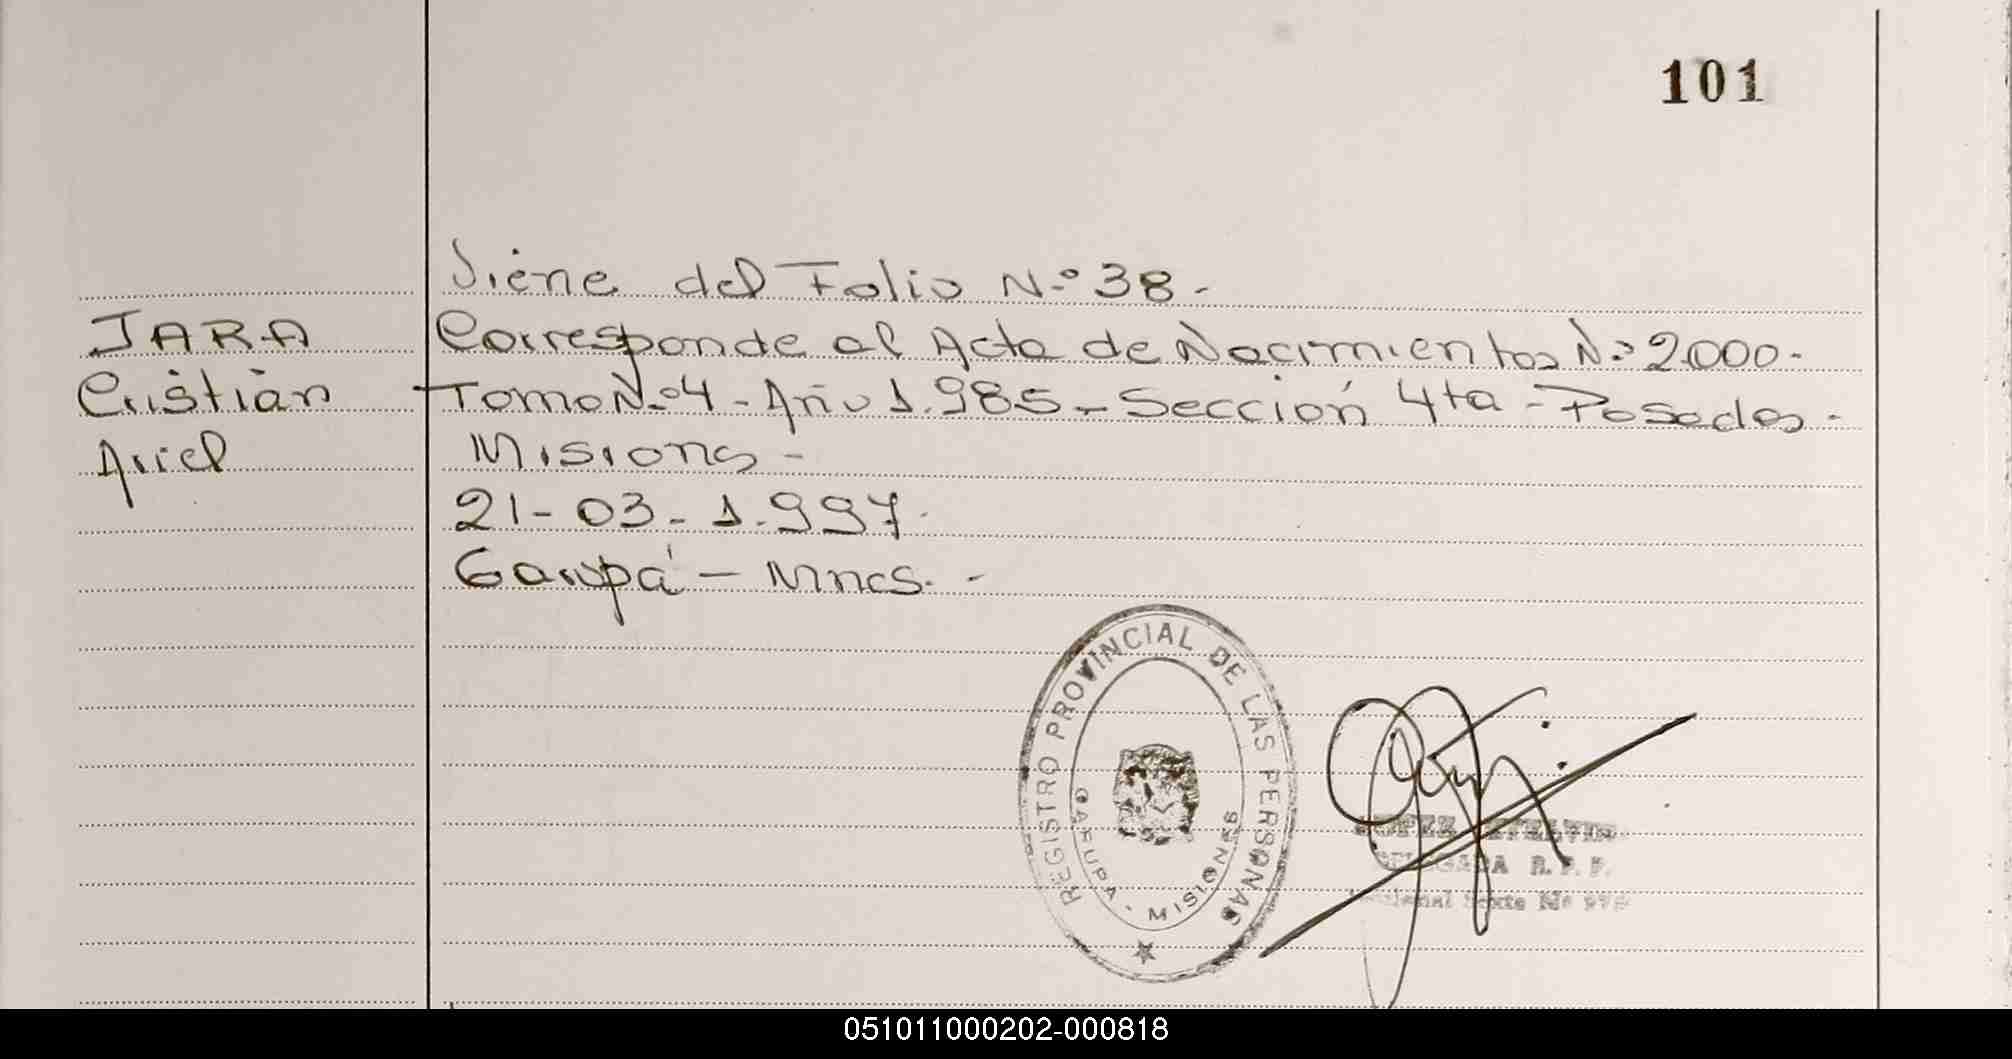 101
Viene del Folio N.º 38.-
JARA
Corresponde al Acta de Nacimientos N.º 2000.-
Cristian
Tomo N.º 4 - Año 1.985 - Sección 4ta - Posadas -
Ariel
Misiones -
21-03-1.997.
Garupá - Mnes. -
REGISTRO PROVINCIAL DE LAS PERSONAS
GARUPA - MISIONES
DELEGADA R. P. P.
051011000202-000818